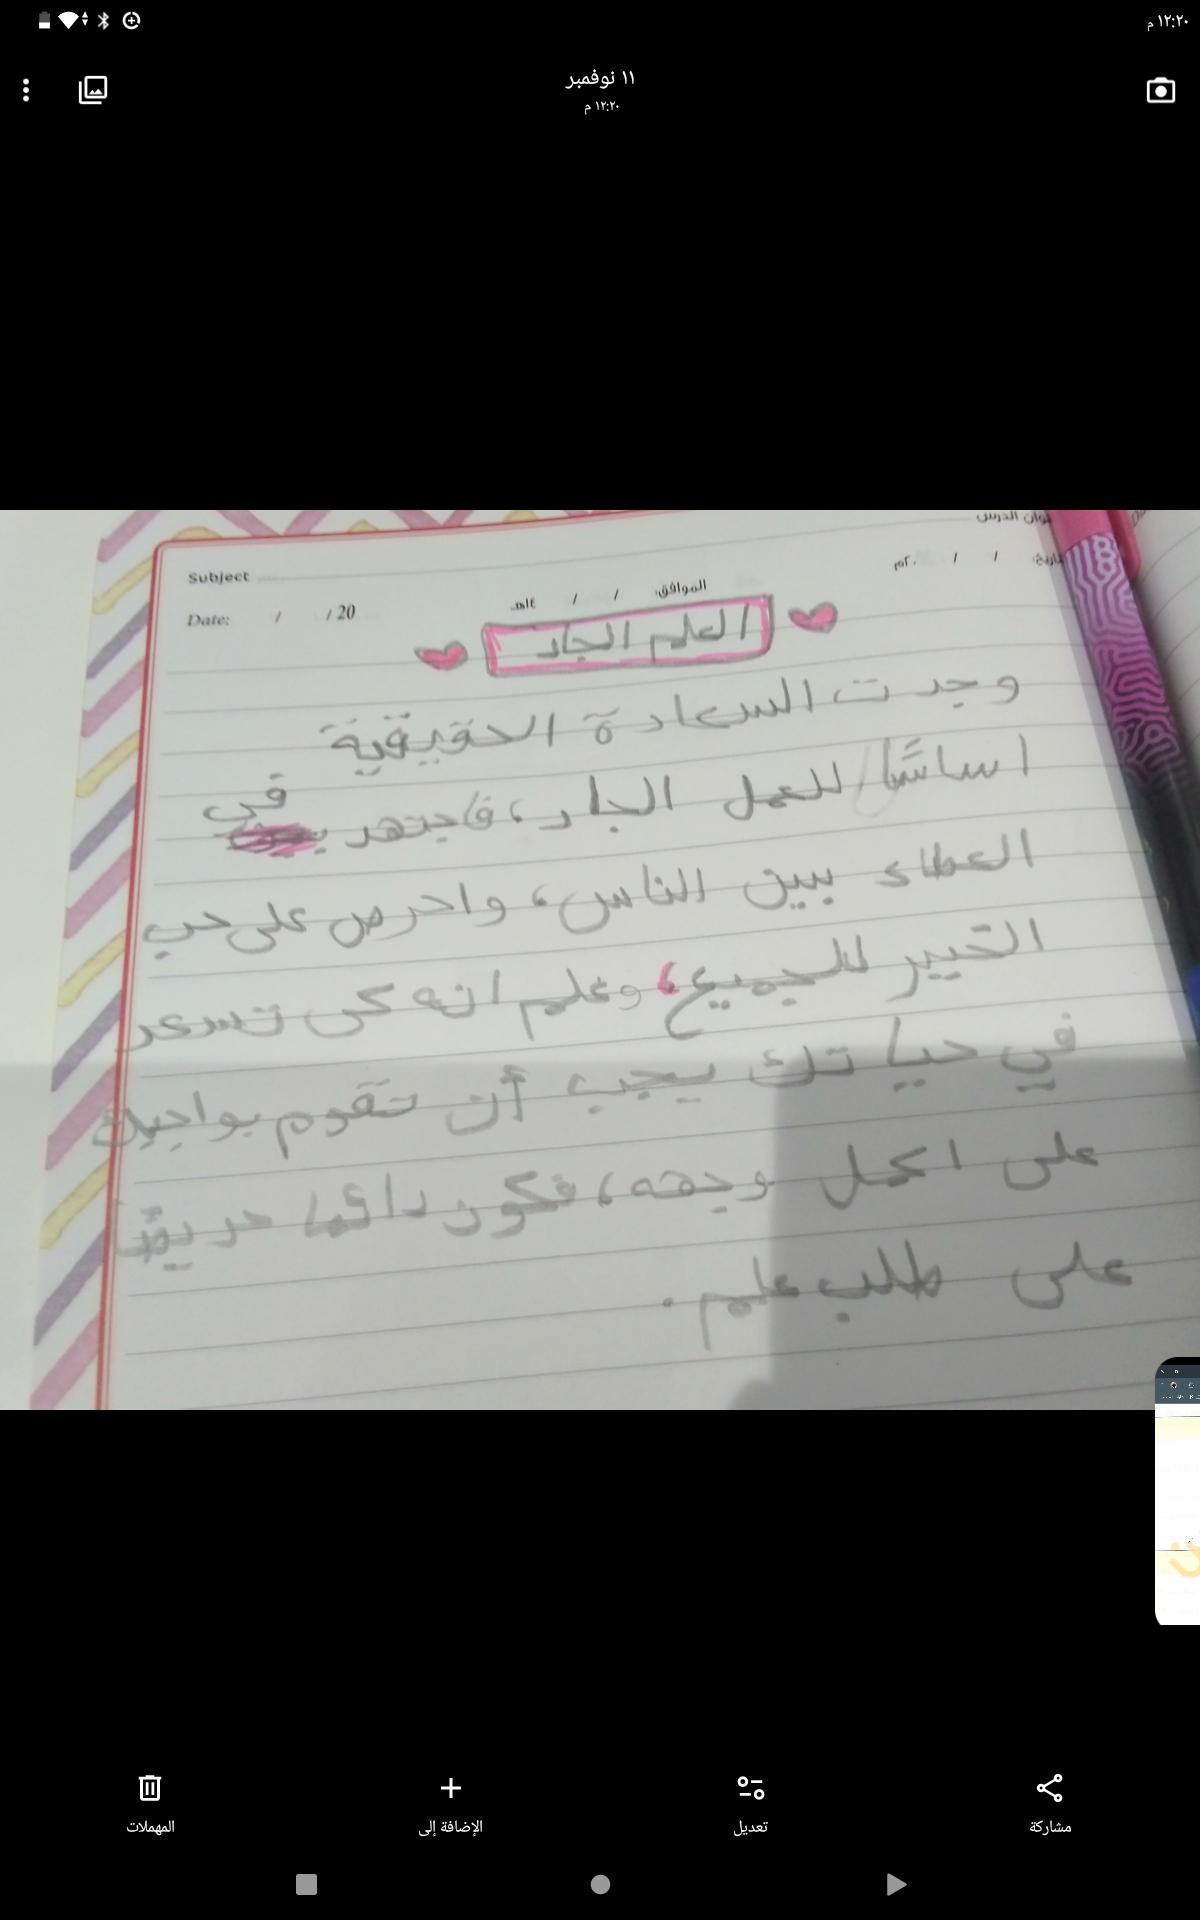 ١٢:٢٠ م
١١ نوفمبر
١٢:٢٠ م
Subject
وان الدرس
Date: / / 20
الموافق: / / ١٤هـ
اريخ: / / ٢٠م
العلم الجاد
وجدت السعادة الحقيقية
اساسًا للعمل الجاد، فاجتهد في
العطاء بين الناس، واحرص على حب
الخير للجميع، وعلم انه كي تسعد
في حياتك يجب أن تقوم بواجبك
على اكمل وجهه، فكون دائما حريصًا
على طلب علم.
مشاركة
تعديل
الإضافة إلى
المهملات